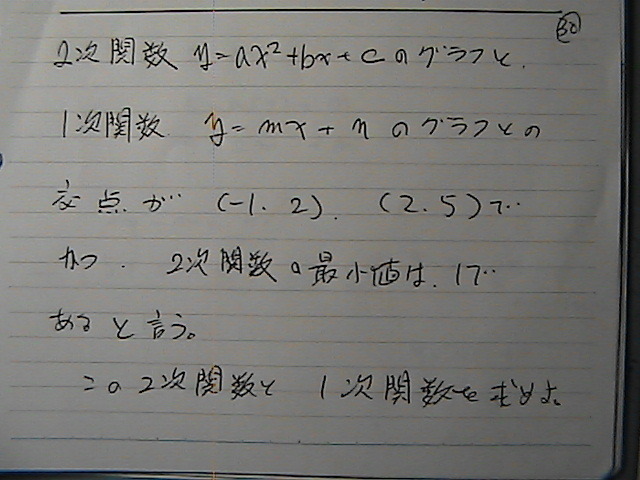 30
2次関数 y=ax²+bx+cのグラフと、
1次関数 y=mx+nのグラフとの
交点が (-1.2). (2.5)で
かつ. 2次関数の最小値は、1で
あると言う。
この2次関数と 1次関数を求めよ。